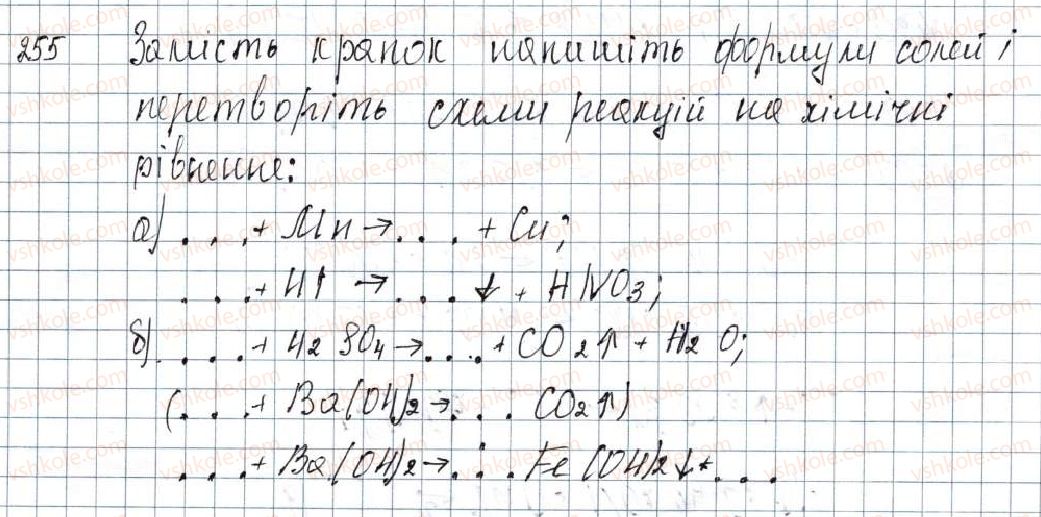 255 Замість крапок напишіть формули солей і
перетворіть схеми реакцій на хімічні
рівнення:
а) . . . + Mn → . . . + Cu;
. . . + HI → . . . ↓ + HNO3;
б) . . . . + H2SO4 → . . . . + CO2↑ + H2O;
(. . . + Ba(OH)2 → . . . CO2↑)
. . . + Ba(OH)2 → . . . Fe(OH)2↓ + . . .